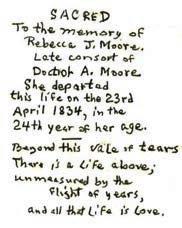 SACRED
To the memory of
Rebecca J. Moore.
Late consort of
Doctor A. Moore
She departed
this life on the 23rd
April 1834, in the
24th year of her age.
Beyond this vale of tears
There is a Life above;
unmeasured by the
flight of years,
and all that Life is Love.